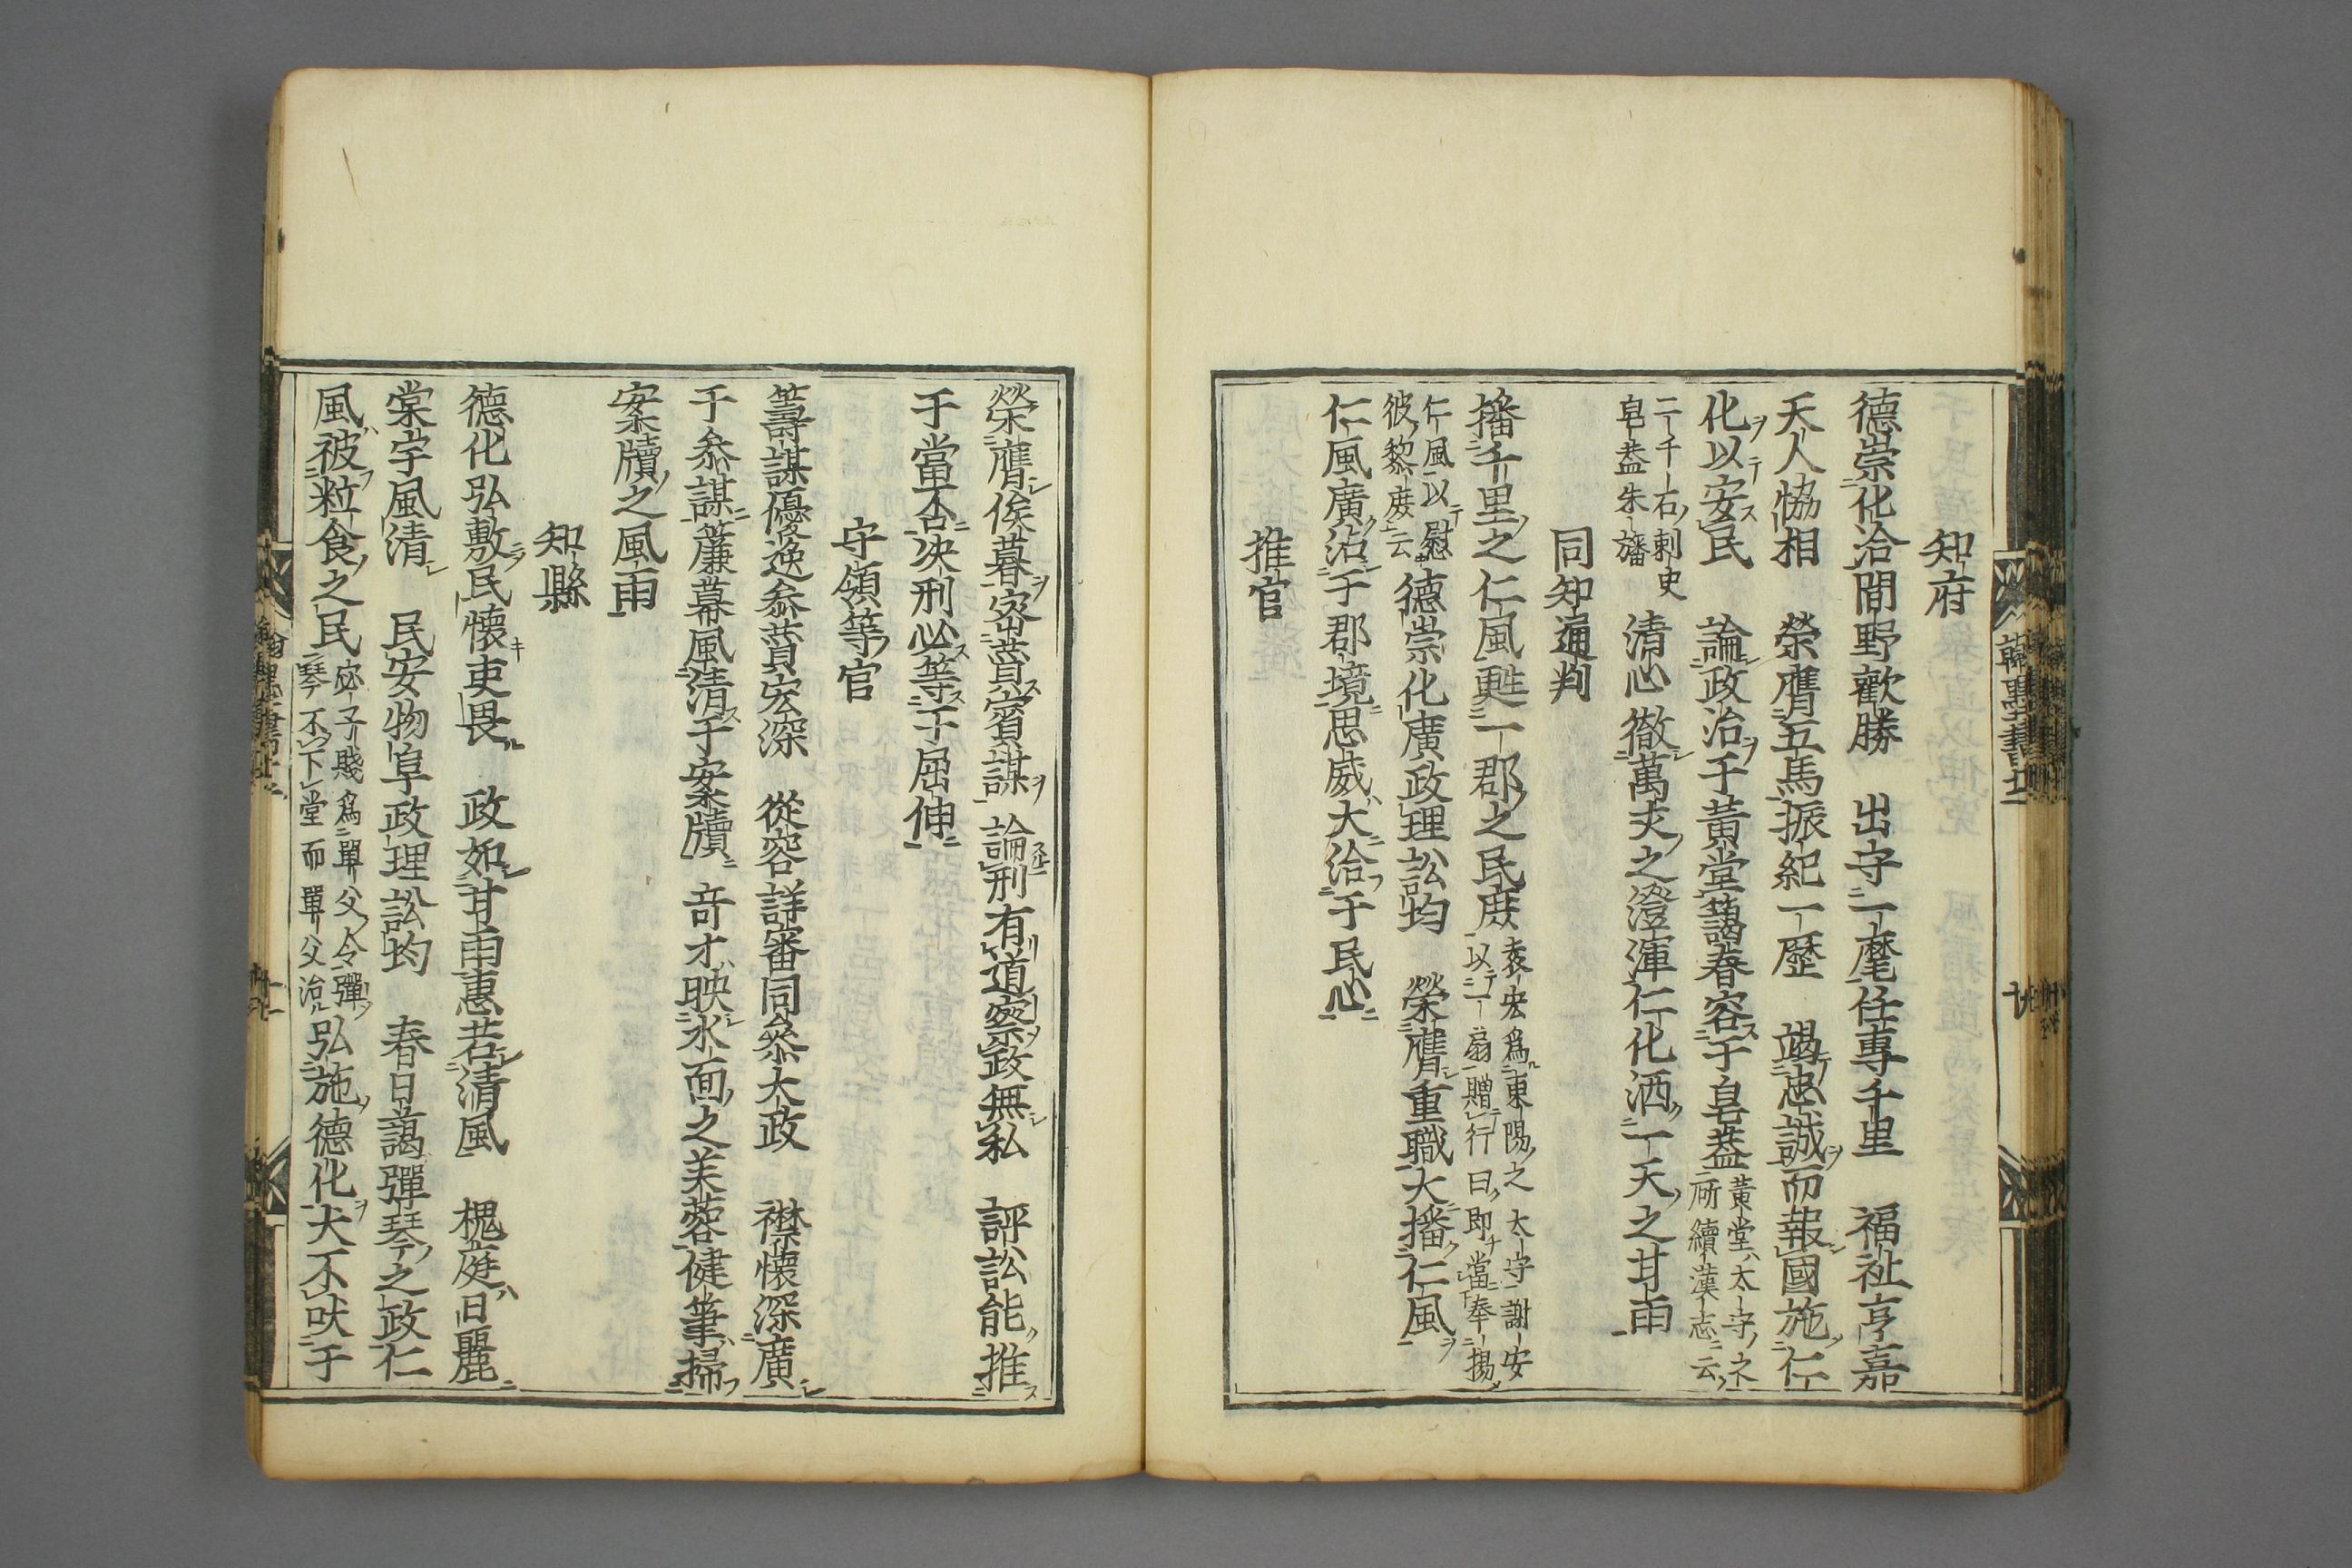 知府
德崇化洽閭野歡勝　出守一麾任專千里　福祉亨嘉
天人恊相　榮膺五馬振紀一歷　竭忠誠而報國施仁
化以安民　論政治于黃堂藹春容于皂盖
黃堂太守之
所續漢志云
二千石刺史
皂盖朱轓
清心徹萬丈之澄渾仁化洒一天之甘雨
同知通判
播千里之仁風甦一郡之民庶
袁宏爲東陽之太守謝安
以一扇贈行曰即當奉揚
仁風以慰
彼黎庶云
德崇化廣政理訟均　榮膺重職大播仁風
仁風廣沾于郡境思威大洽于民心
推官
榮膺俟暮密賛賓謀　論刑有道察政無私　評訟能推
于當否决刑必等于屈伸
守領等官
籌謀優逸叅賛宏深　從容詳審同叅大政　襟懷深廣
于叅謀簾幕風清于案牘　奇才映氷面之芙蓉健筆掃
案牘之風雨
知縣
德化弘敷民懷吏畏　政如甘雨惠若清風　槐庭日麗
棠宇風清　民安物阜政理訟均　春日藹彈琴之政仁
風被粒食之民
宓子賤爲單父令彈
琴不下堂而單父治
弘施德化犬不吠于